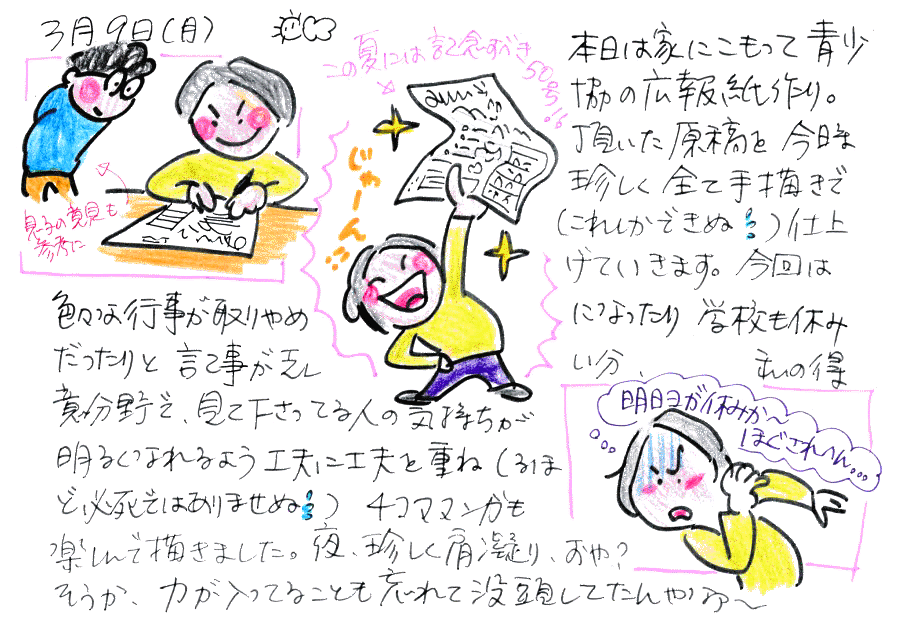 3月9日(月)
この夏には記念すべき
50号に
じゃーん!!
息子の意見も
参考に
本日は家にこもって 青少
協の広報紙作り。
頂いた原稿を 今時
珍しく 全て手描きで
(これしかできぬ)仕上
げていきます。今回は
色々な行事が取りやめ
になったり 学校も休み
だったりと 記事が乏し
い分、私の得
意分野で、見て下さってる人の気持ちが
明るくなれるよう 工夫に工夫を重ね(るほ
ど必死ではありませぬ) 4コママンガも
楽しんで描きました。夜、珍しく肩凝り、おや?
そうか、力が入ってることも忘れて没頭してたんやなあ〜
明日ヨガ休みか〜
ほぐされへん...